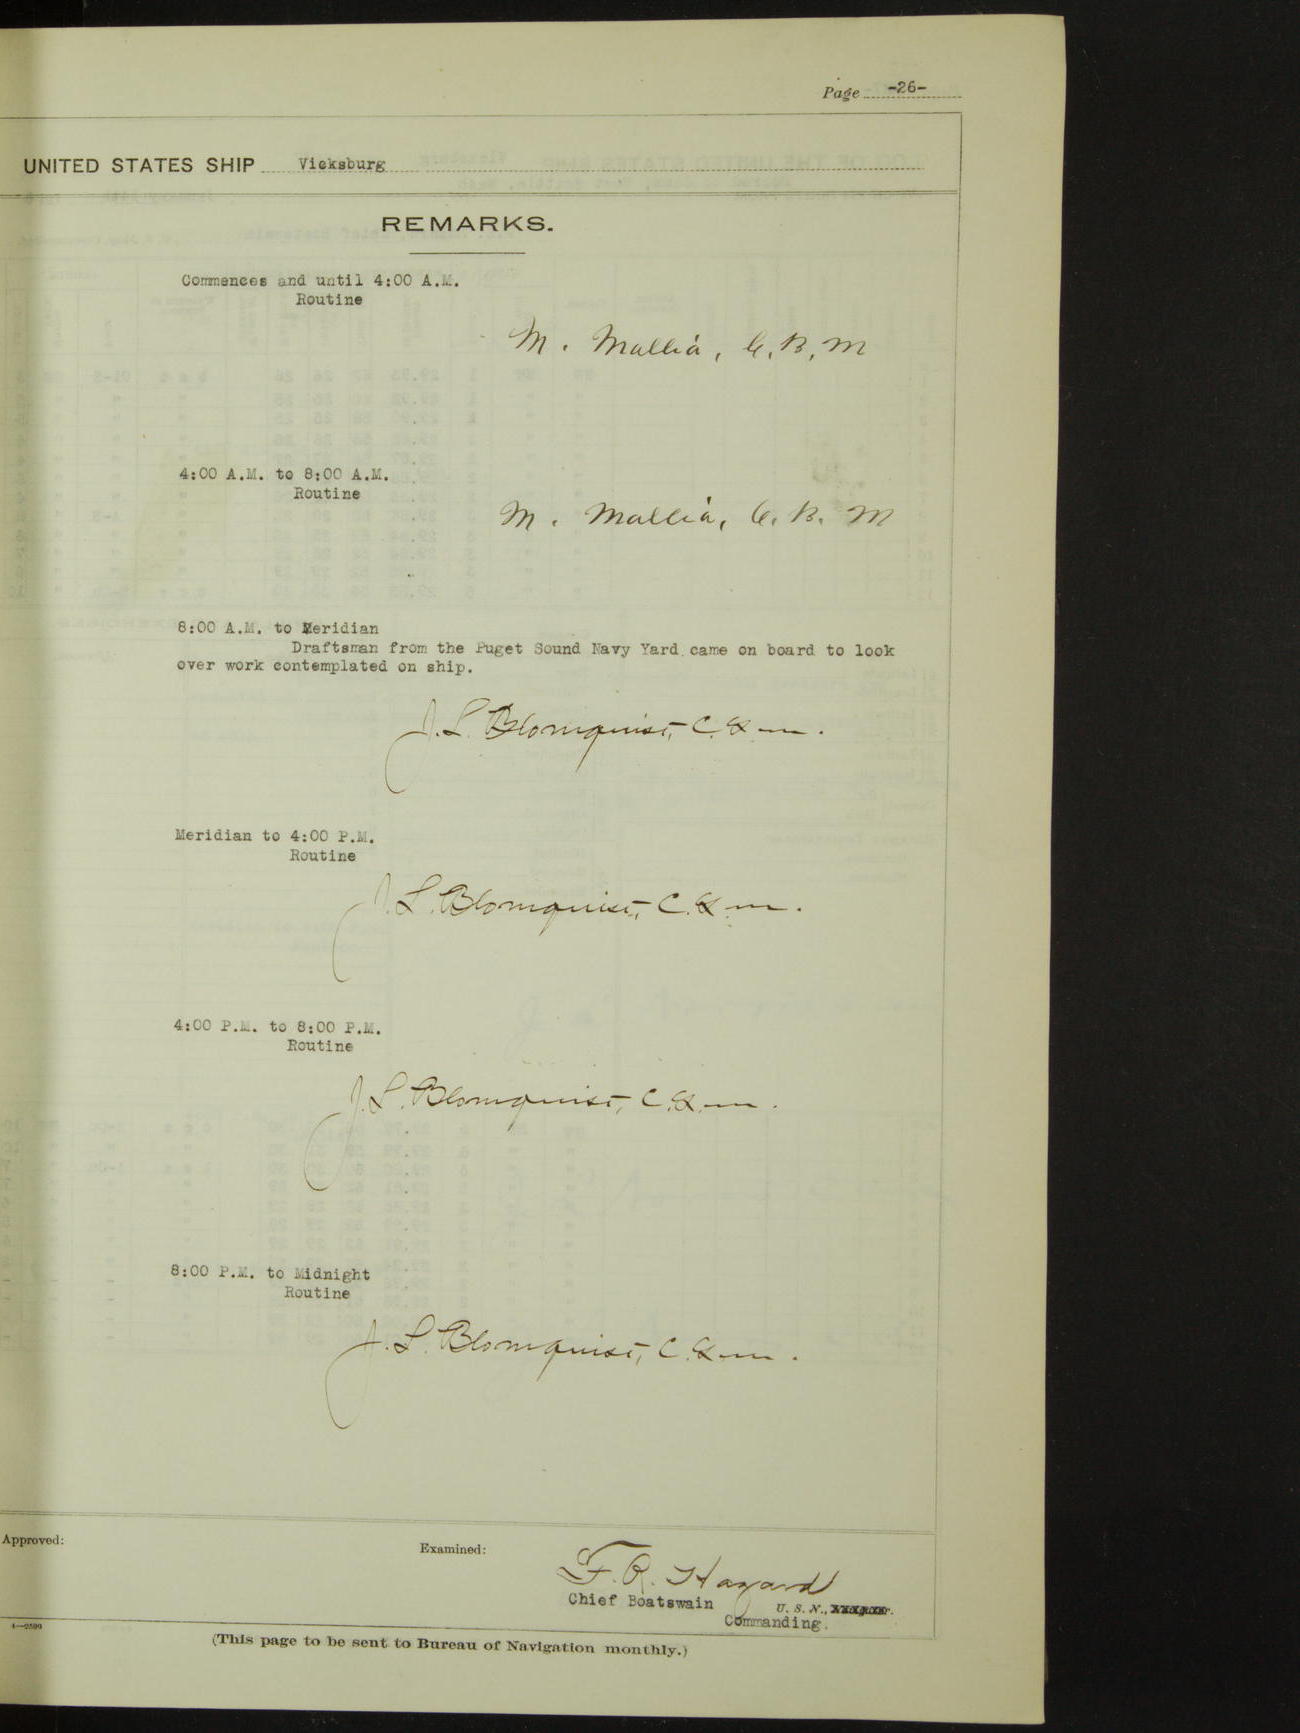 Page -26-
UNITED STATES SHIP Vicksburg
REMARKS.
Commences and until 4:00 A.M.
Routine
M. Mallia, C. B. M
4:00 A.M. to 8:00 A.M.
Routine
M. Mallia, C. B. M
8:00 A.M. to Meridian
Draftsman from the Puget Sound Navy Yard came on board to look
over work contemplated on ship.
J. L. Blomquist, C.
Meridian to 4:00 P.M.
Routine
J. L. Blomquist, C.
4:00 P.M. to 8:00 P.M.
Routine
J. L. Blomquist, C.
8:00 P.M. to Midnight
Routine
J. L. Blomquist, C.
Approved:
Examined:
F. R. Hazard
Chief Boatswain U. S. N.,
Commanding.
(This page to be sent to Bureau of Navigation monthly.)